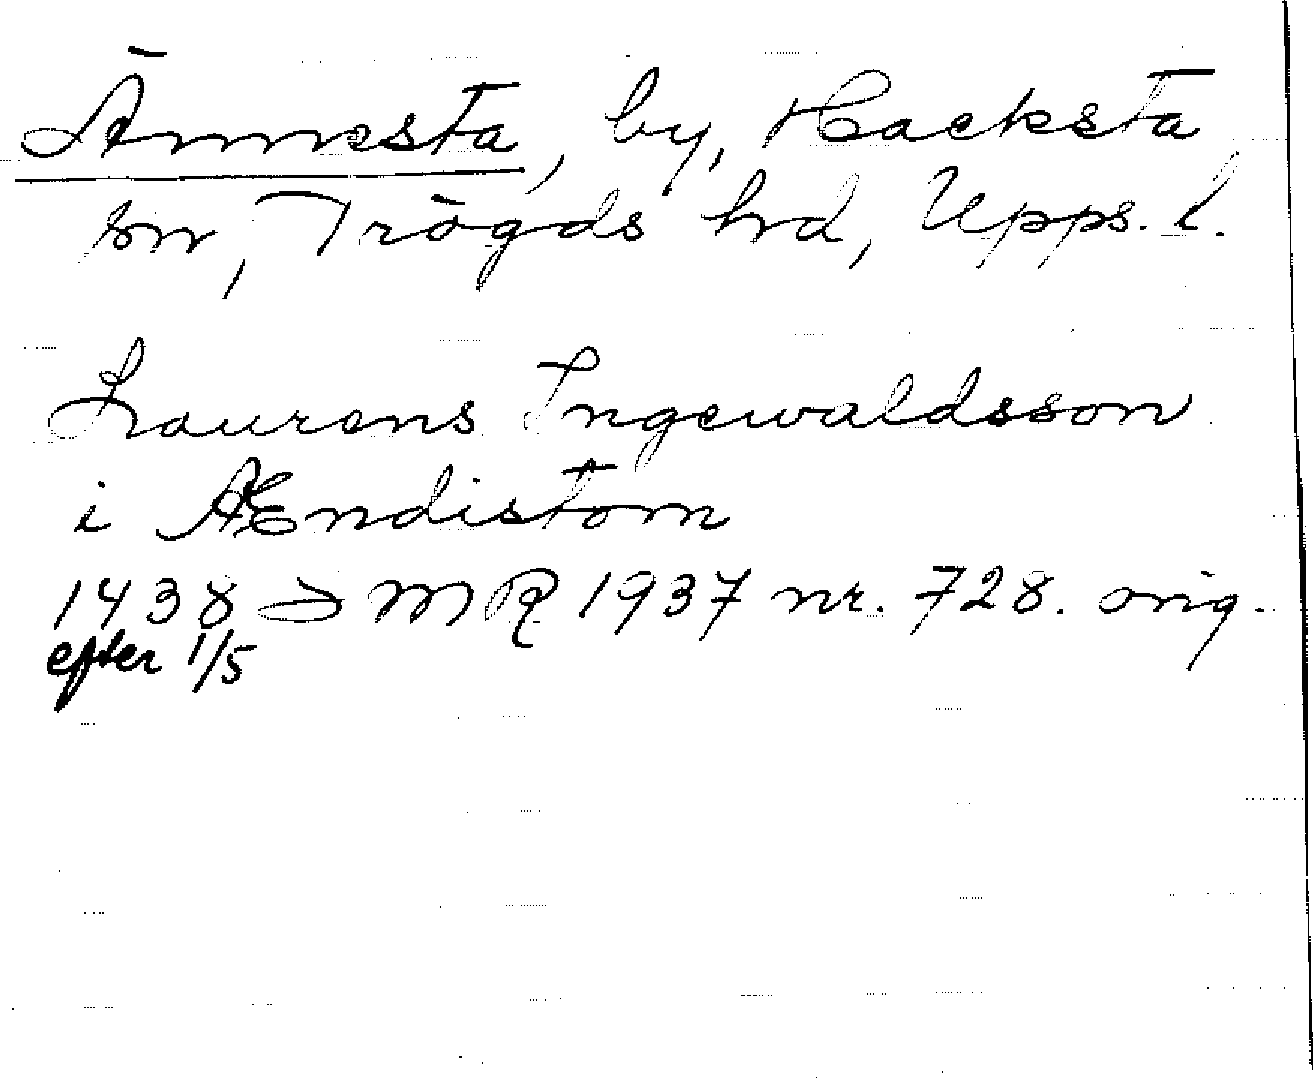 Ännesta, by, Hacksta
sn, Trögds hd, Upps. l.
Laurens Ingewaldsson
i AEndistom
1438 SMR 1937 nr. 728. orig.
efter 1/5